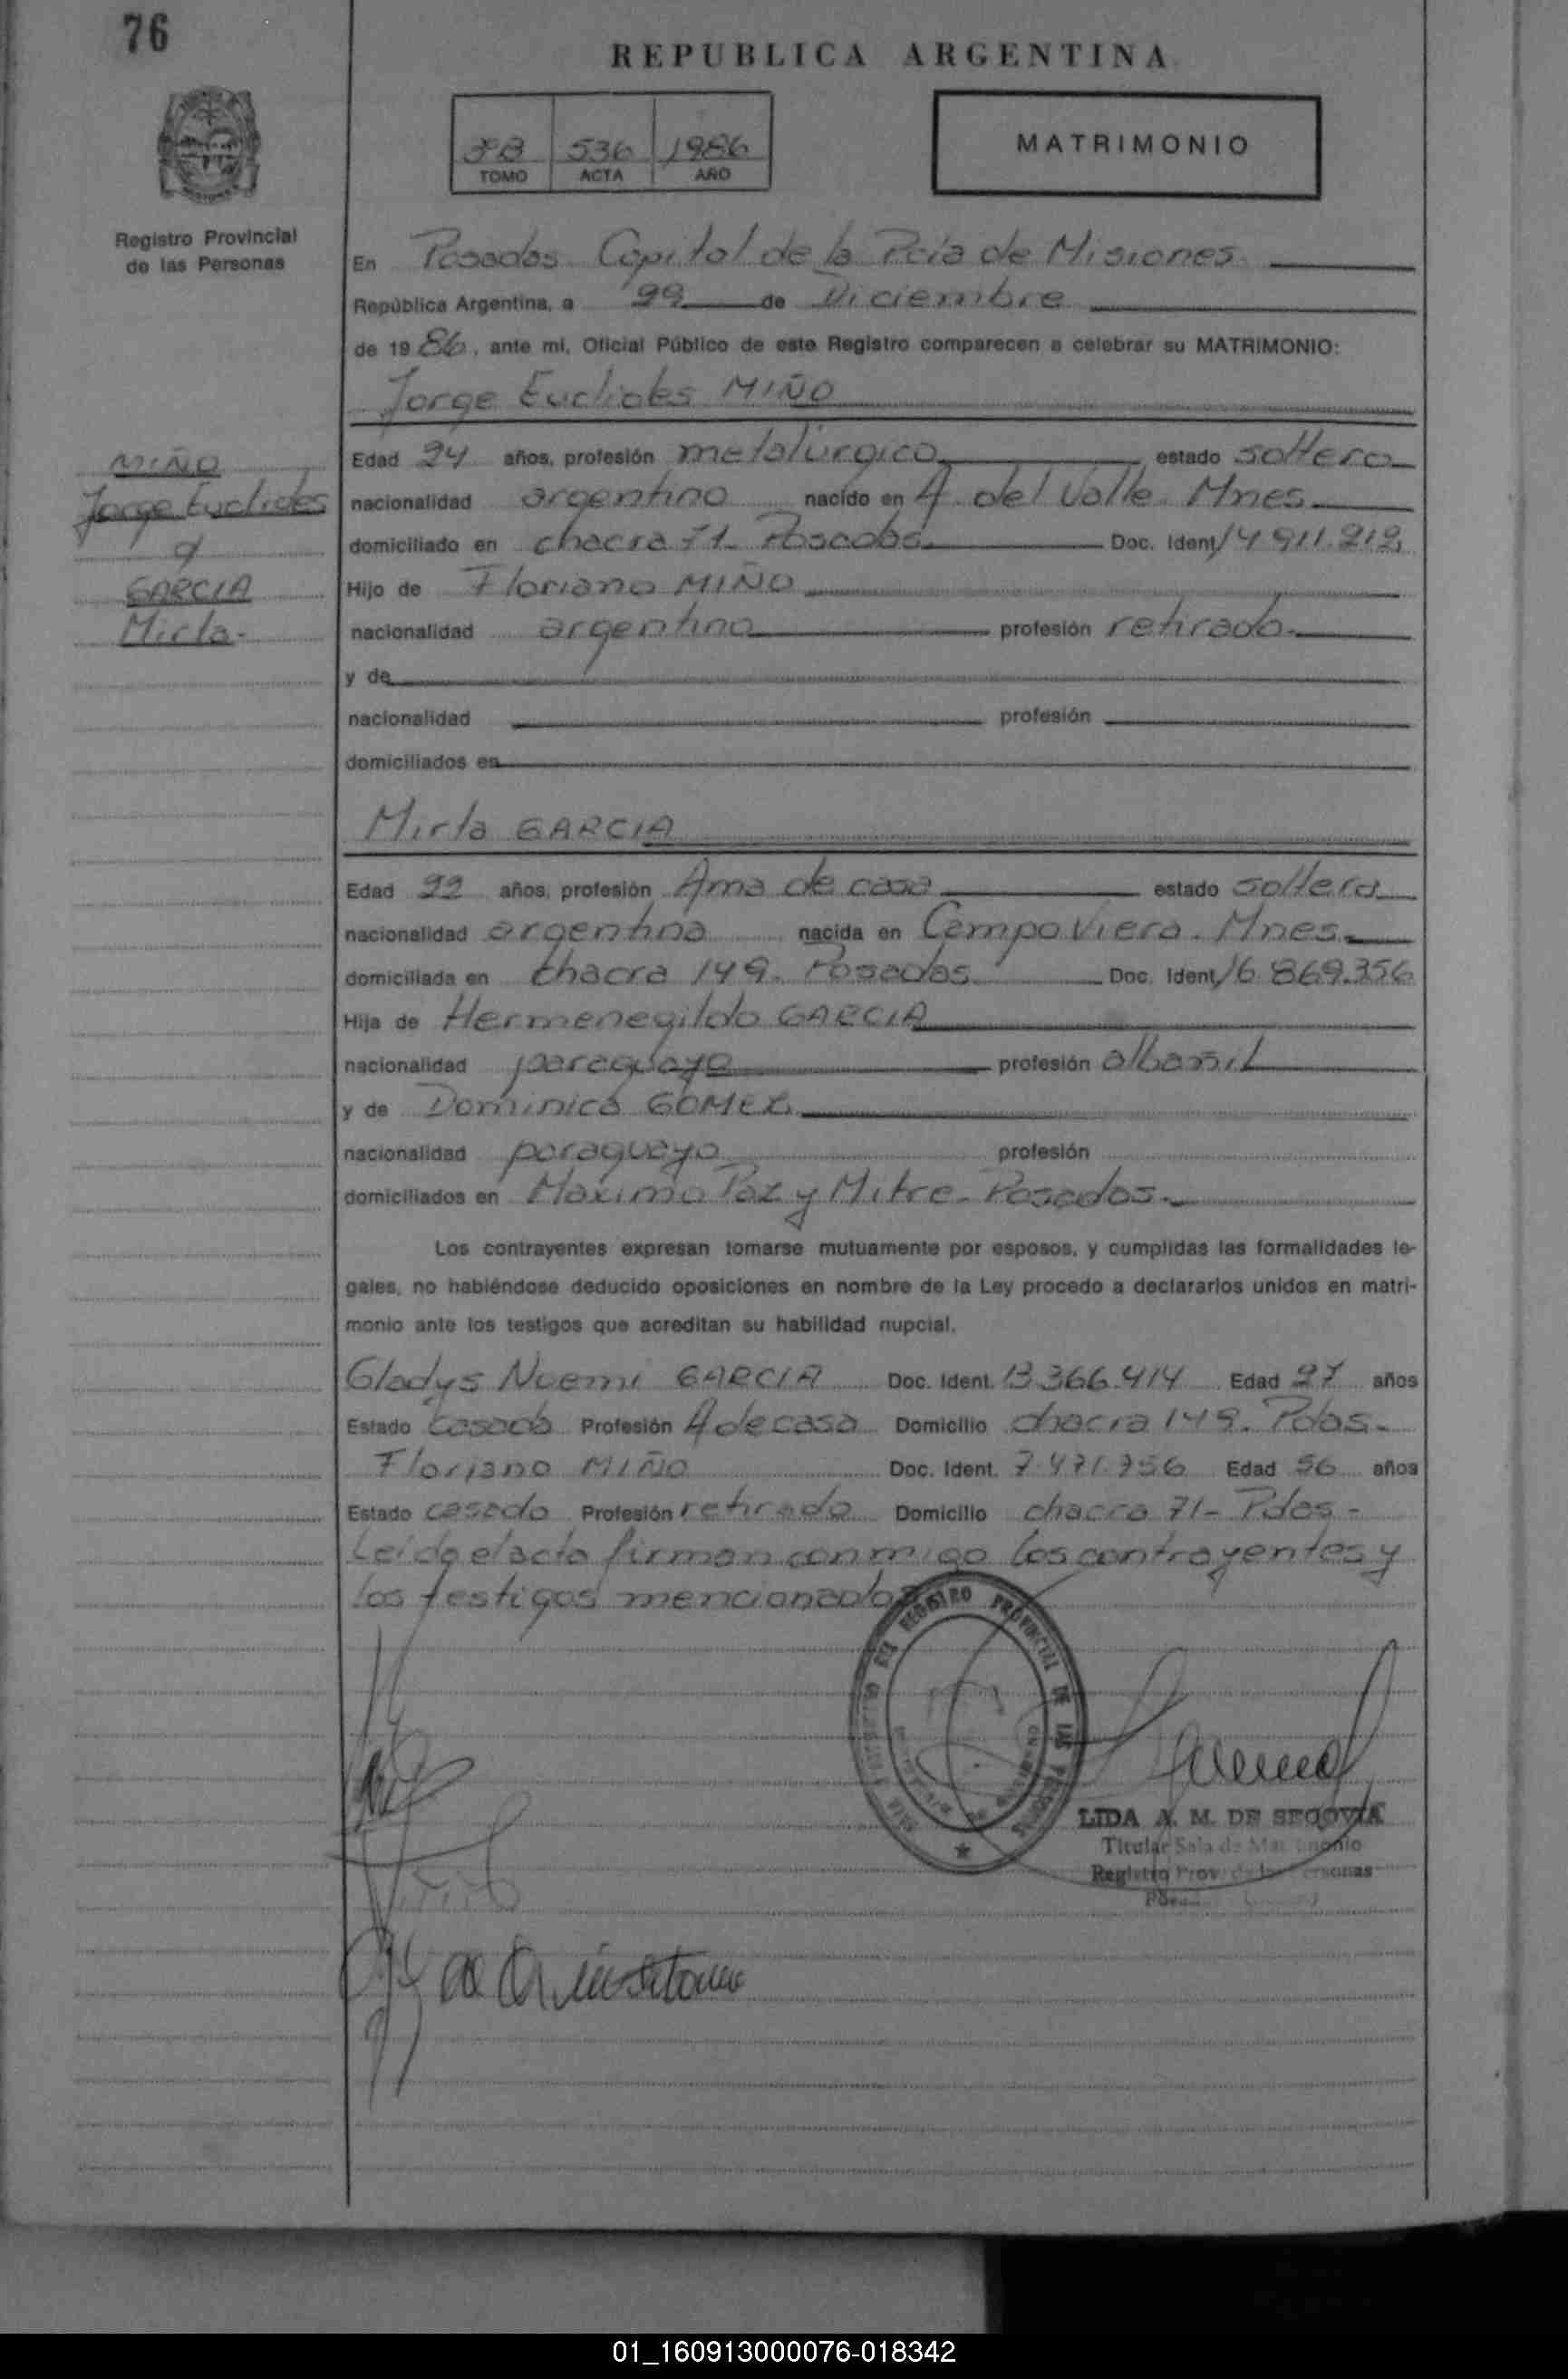 76
REPUBLICA ARGENTINA
536 1986
TOMO ACTA AÑO
MATRIMONIO
Registro Provincial
de las Personas
En Posadas Capital de la Pcia de Misiones
República Argentina, a 22 de Diciembre
de 1986, ante mi, Oficial Público de este Registro comparecen a celebrar su MATRIMONIO:
Jorge Euclides MIÑO
MIÑO
Jorge Euclides
y
GARCIA
Mirta-
Edad 24 años, profesión metalúrgico estado soltero
nacionalidad argentino nacido en A. del Valle Mnes.
domiciliado en chacra 71- Posadas. Doc. Ident. 14.911.212
Hijo de Floriano MIÑO
nacionalidad argentino profesión retirado.
y de
nacionalidad profesión
domiciliados en
Mirta GARCIA
Edad 22 años, profesión Ama de casa estado soltera
nacionalidad argentina nacida en Campo Viera. Mnes.
domiciliada en chacra 149. Posadas. Doc. Ident. 16.869.356
Hija de Hermenegildo GARCIA
nacionalidad paraguaya profesión albañil
y de Dominica GOMEZ
nacionalidad paraguaya profesión
domiciliados en Maximo Paz y Mitre- Posadas.
Los contrayentes expresan tomarse mutuamente por esposos, y cumplidas las formalidades le-
gales, no habiéndose deducido oposiciones en nombre de la Ley procedo a declararlos unidos en matri-
monio ante los testigos que acreditan su habilidad nupcial.
Gladys Noemi GARCIA Doc. Ident. 13.366.414 Edad 27 años
Estado casada Profesión A de casa Domicilio chacra 149. Pdas-
Floriano MIÑO Doc. Ident. 7.471.756 Edad 56 años
Estado casado Profesión retirado Domicilio chacra 71- Pdas-
Leida el acta firman conmigo los contrayentes y
los testigos mencionados
REGISTRO PROVINCIAL DE LAS PERSONAS
LIDA A. M. DE SEGOVIA
Titular Sala de Matrimonio
Registro Prov. de las Personas
01_160913000076-018342